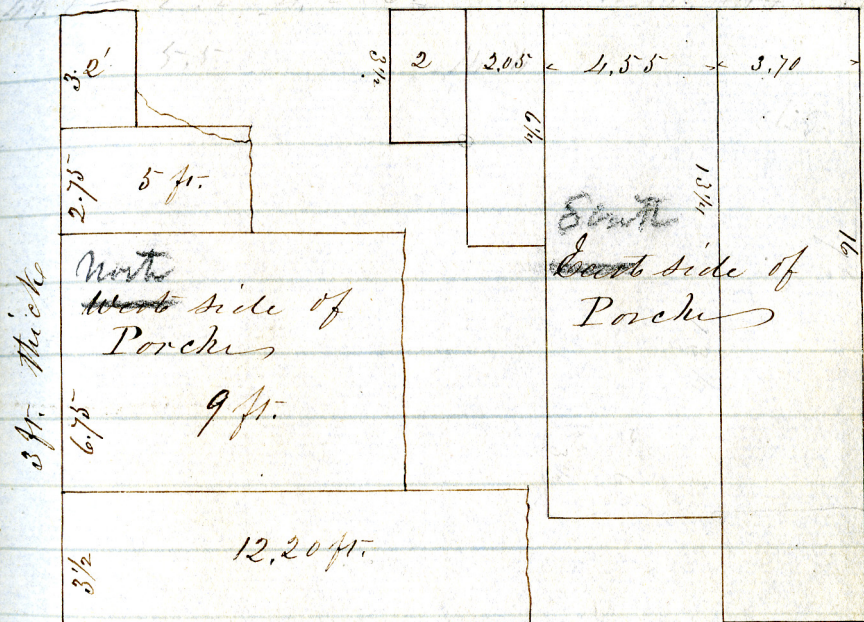 3 ft. thick
3.
2'
5.5
2.75
5 ft.
North
West side of
Porch
6.75
9 ft.
3 1/2
12.20 ft.
3 1/2
2
2.05
4.55
3.70
6 1/4
13 1/4
16
South
East side of
Porch